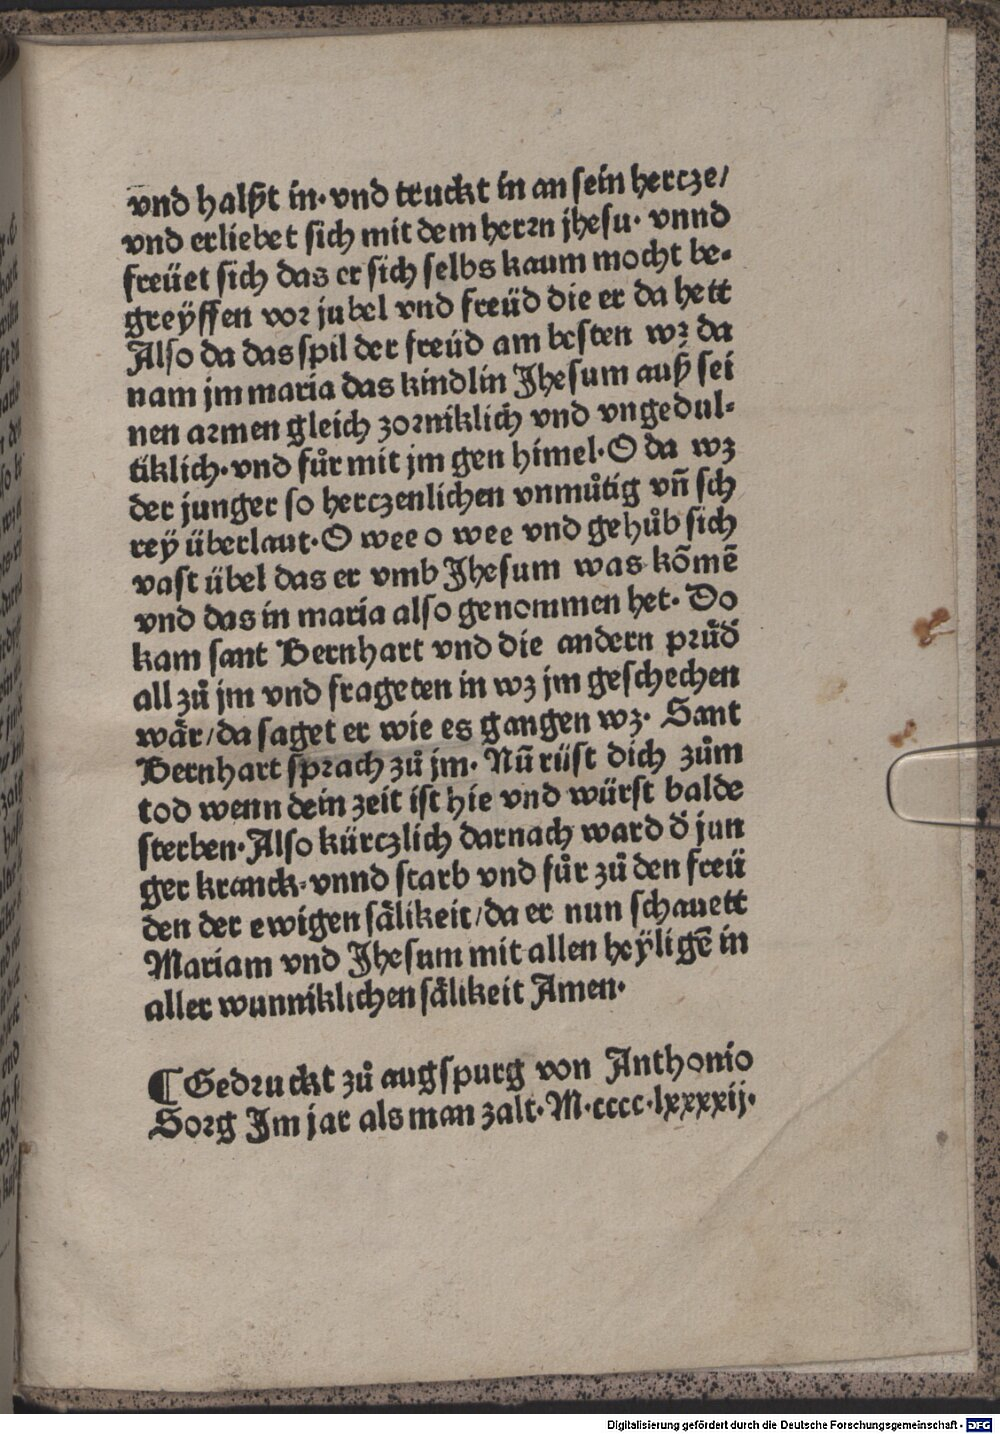 vnd halßt in· vnd truckt in an sein hercze/
vnd erliebet sich mit dem herrn jhesu· vnnd
freüet sich das er sich selbs kaum mocht be-
greÿffen vor jubel vnd freüd die er da hett
Also da das spil der freüd am besten wz da
nam jm maria das kindlin Jhesum auß sei
nen armen gleich zorniklich vnd vngedul-
tiklich· vnd fůr mit jm gen himel· O da wz
der junger so herczenlichen vnmůtig vñ sch
reÿ überlaut· O wee o wee vnd gehůb sich
vast übel das er vmb Jhesum was kõmẽ
vnd das in maria also genommen het· Do
kam sant Bernhart vnd die andern průd̄
all zů jm vnd frageten in wz jm geschechen
wår/ da saget er wie es gangen wz· Sant
Bernhart sprach zů jm· Nũ rüst dich zům
tod wenn dein zeit ist hie vnd würst balde
sterben· Also kürczlich darnach ward d̄ jun
ger kranck· vnnd starb vnd fůr zů den freü
den der ewigen sålikeit/ da er nun schauett
Mariam vnd Jhesum mit allen heÿligẽ in
aller wunniklichen sålikeit Amen·
¶ Gedruckt zů augspurg von Anthonio
Sorg Im jar als man zalt· M·cccc·lxxxxij·
Digitalisierung gefördert durch die Deutsche Forschungsgemeinschaft - DFG